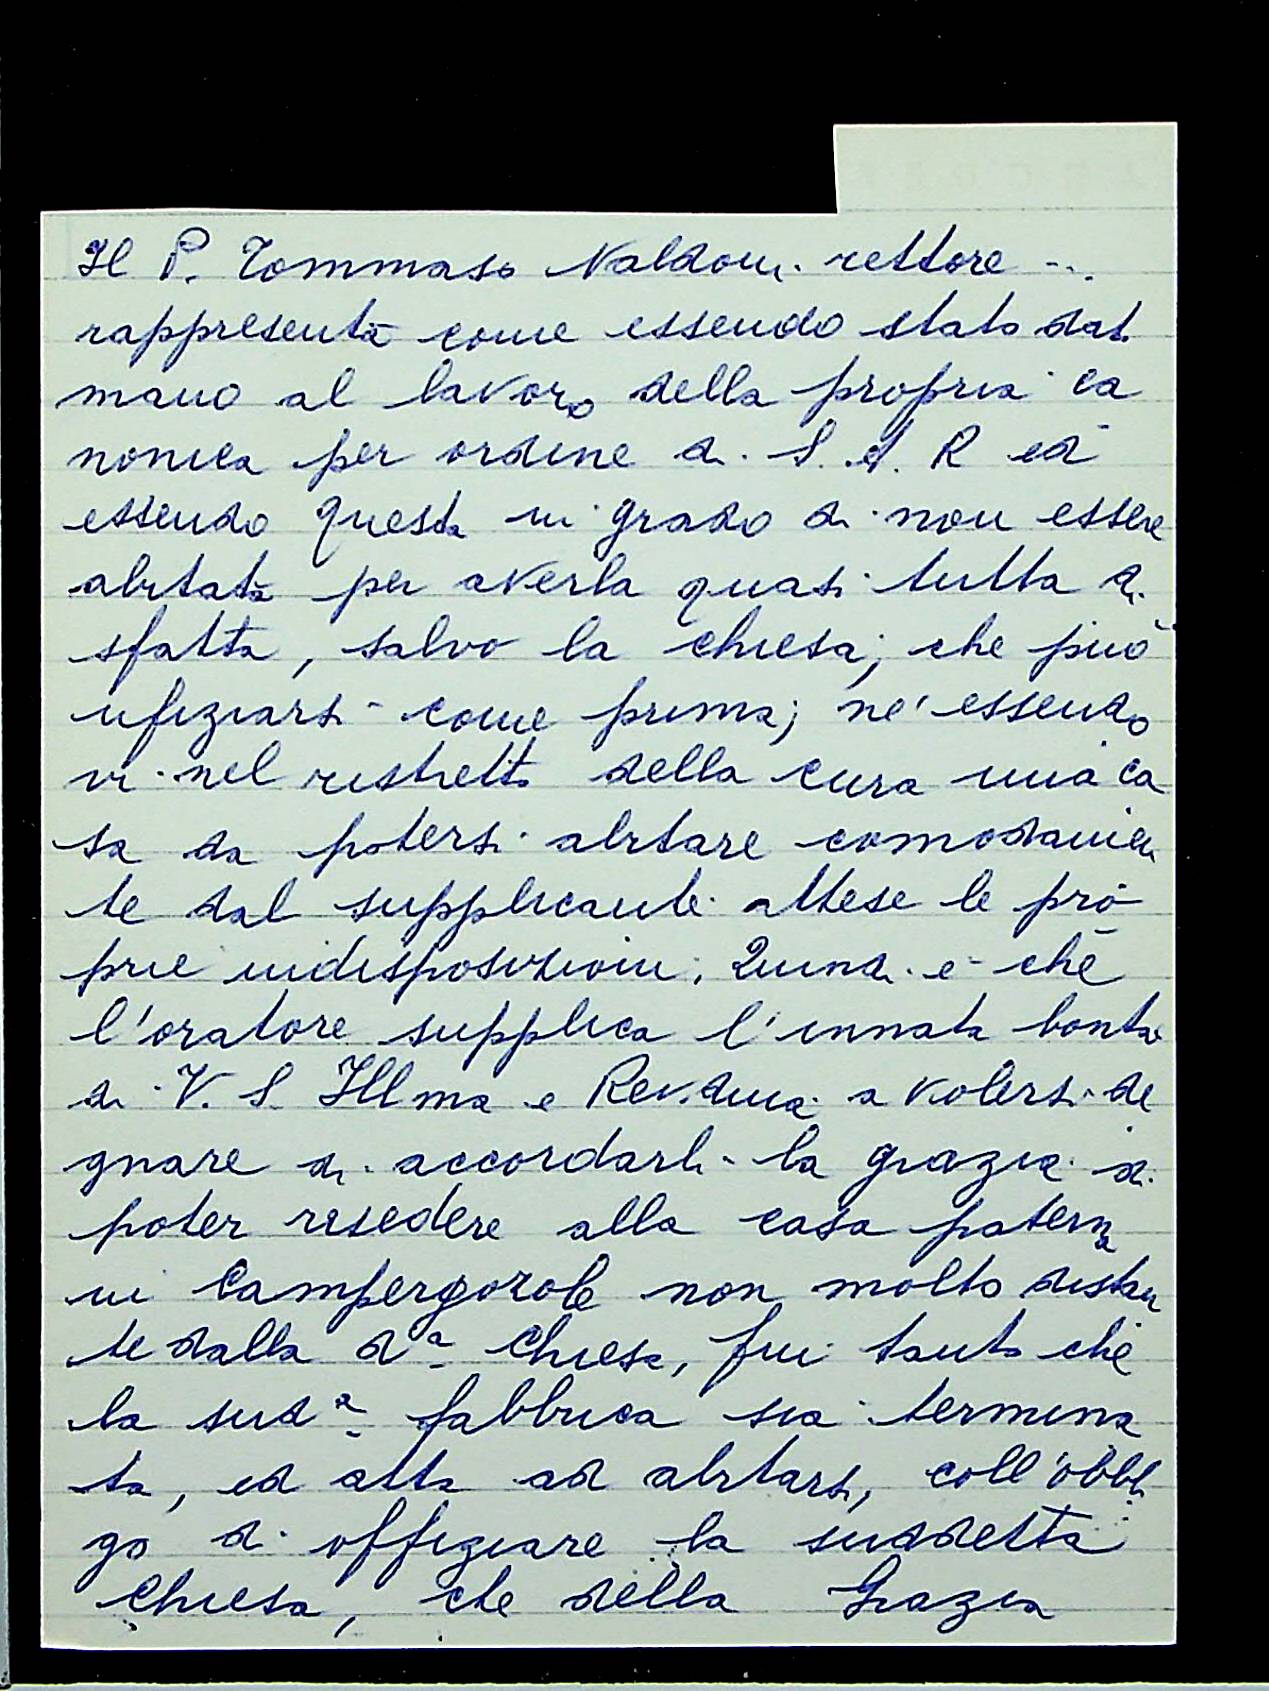 Il P. Tommaso Naldoni rettore ...
rappresenta come essendo stato dat
mano al lavoro della propria ca
nonica per ordine di S. A. R ed
essendo questa in grado di non essere
abitata per averla quasi tutta di
sfatta, salvo la chiesa; che può
ufiziarsi come prima; né essendo
vi nel ristretto della cura una ca
sa da potersi abitare comodamen
te dal supplicante attese le pro
prie indisposizioni. Quindi è che
l'oratore supplica l'innata bontà
di V. S. Illma e Revdma a volersi de
gnare di accordarli la grazia di
poter risedere alla casa paterna
in Campergozole non molto distan
te dalla da Chiesa, fin tanto che
la suda fabbrica sia termina
ta, ed atta ad abitarsi, coll'obbli
go di offiziare la suddetta
Chiesa, che della Grazia